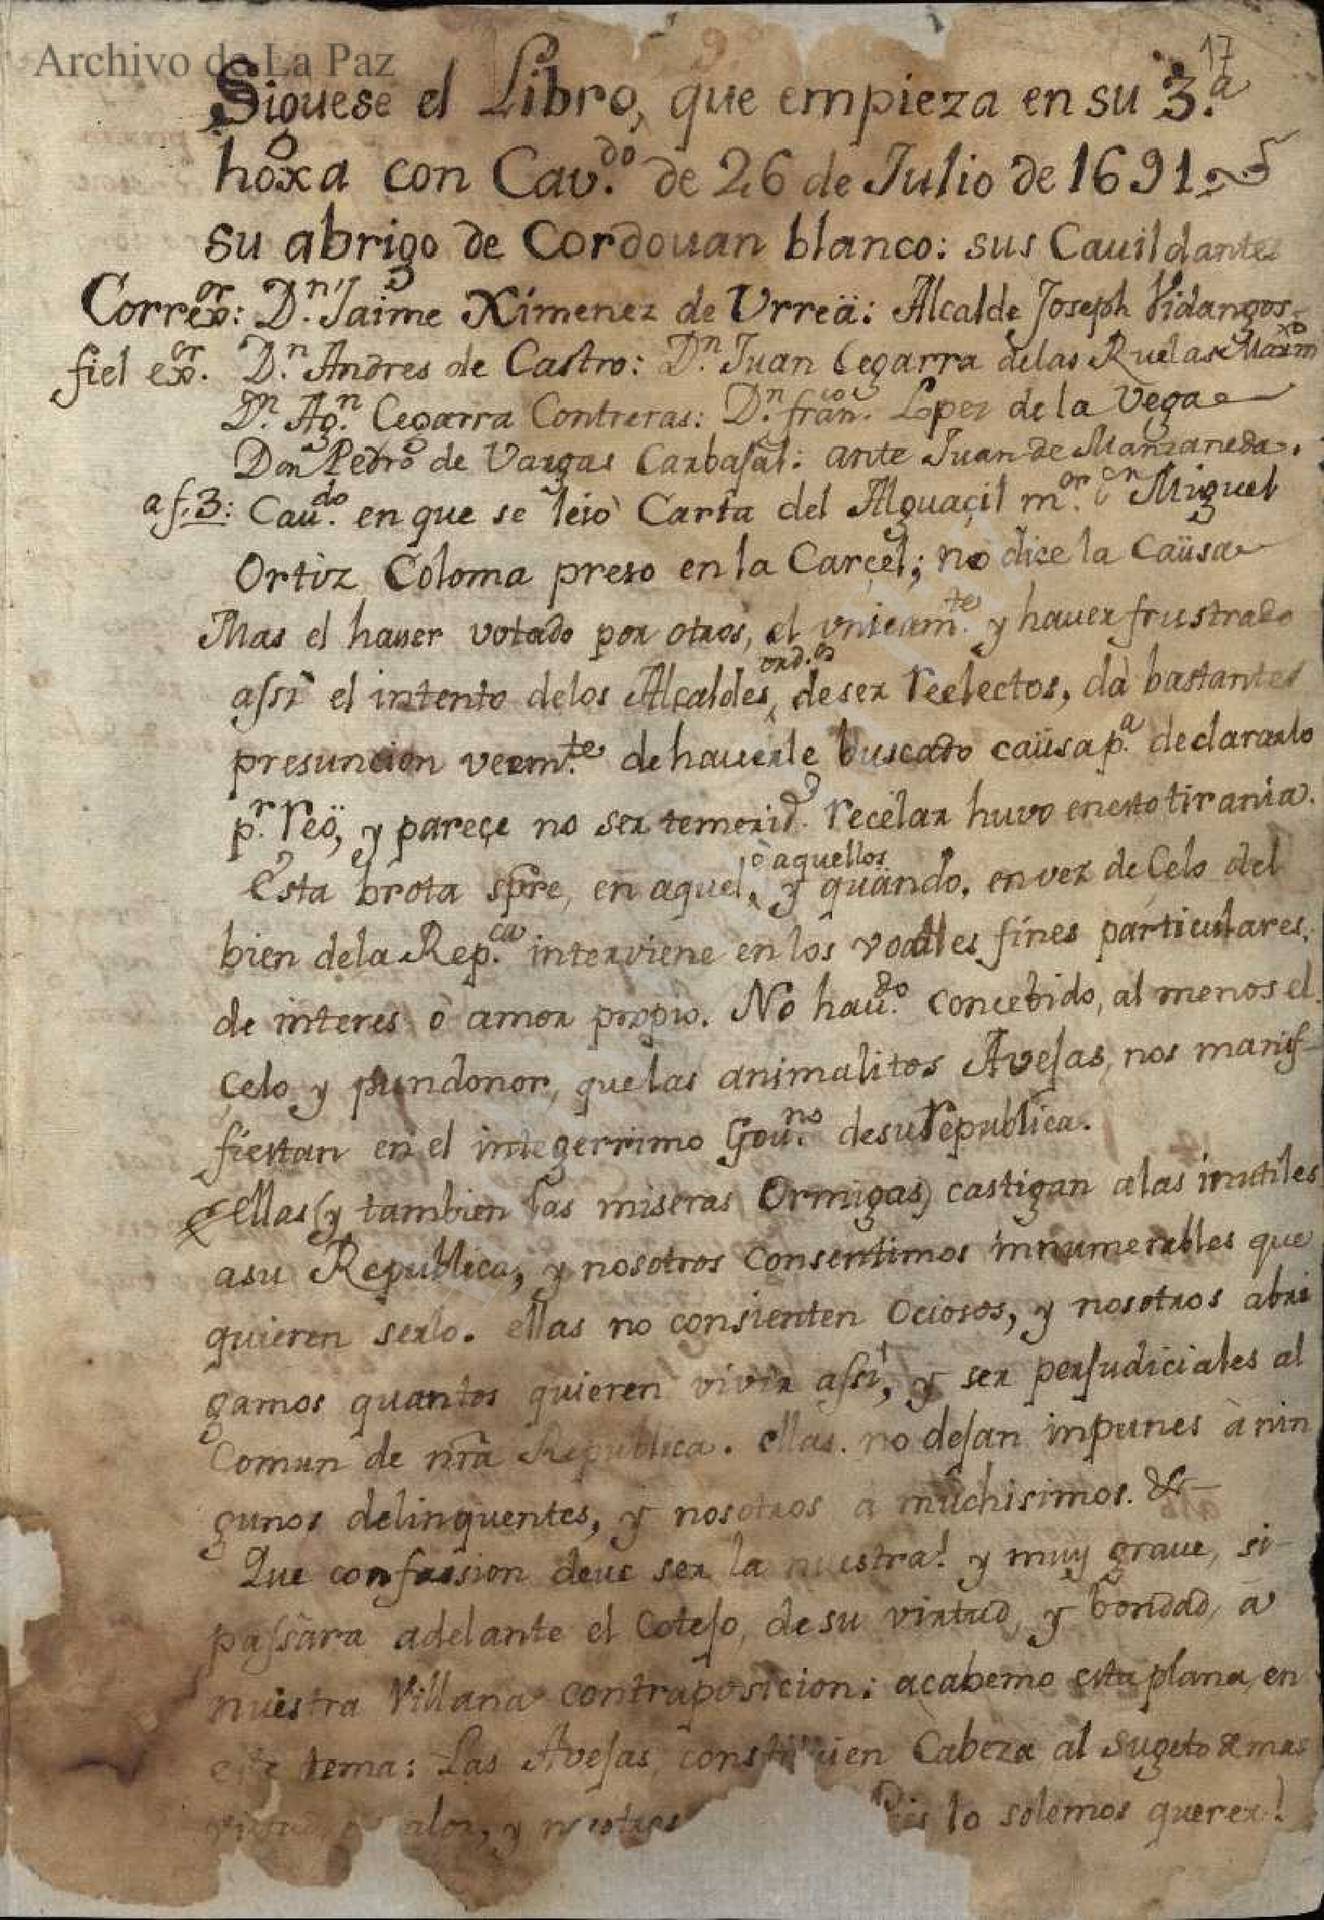 Archivo de La Paz
17
Siguese el Libro, que empieza en su 3.ª
hoxa con Cav.do de 26 de Julio de 1691
su abrigo de Cordouan blanco: sus Cauildantes
Correx.or: D.n Jaime Ximenez de Urreä: Alcalde Joseph Vidangos
fiel ex.or D.n Andres de Castro: D.n Juan Cegarra delas Ruelas
D.n Ag.n Cegarra Contreras: D.n fran.co Lopez de la Vega
Don Pedro de Vargas Carbajal: ante Juan de Manzaneda.
a f. 3: Cau.do en que se leiò Carta del Alguaçil m.or Miguel
Ortiz Coloma preso en la Carçel; no dice la Caüsa
Mas el hauer votado por otros, el vnicam.te y hauer frustrado
assi el intento delos Alcaldes ord.os de ser reelectos, dà bastantes
presuncion veem.te de hauerle buscado caüsa p.a declararlo
p.r reö, y pareçe no ser temerid.d reçelar huvo en esto tirania.
Esta brota spre, en aquel, ò aquellos y quändo, en vez de Celo del
bien dela Rep.ca interviene en los fines particulares,
de interes ò amor propio. No hau.do concebido, al menos el
çelo y pundonor, que las animalitos Avejas, nos manif-
fiestan en el integerrimo Gou.no de su republica.
ellas (y tambien las miseras Ormigas) castigan a las inutiles
a su Republica, y nosotros consentimos innumerables que
quieren serlo. ellas no consienten Ociosos, y nosotros abri
gamos quantos quieren vivir assi, y ser perjudiciales al
Comun de nrã Republica. ellas no dejan inpunes à nin
gunos delinquentes, y nosotros a muchisimos. &-
Que confussion deue ser la nuestra! y muy graue, si
passara adelante el Cotejo, de su virtud, y bondad, à
nuestra Villana contraposicion: acabemo esta plana, en
este tema: Las Avejas, constituien Cabeza al Sugeto de mas
y nosotros lo solemos querer!